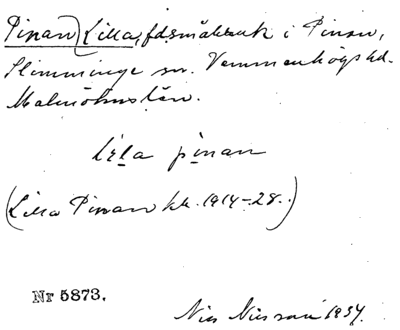 Pinan, Lilla, f.d. småbruk i Pinan,
Slimminge sn. Vemmenhögs hd.
Malmöhus län.
lila pinan
(Lilla Pinan kk. 1914-28.)
Nr 5873.
Nils Nilsson 1937.